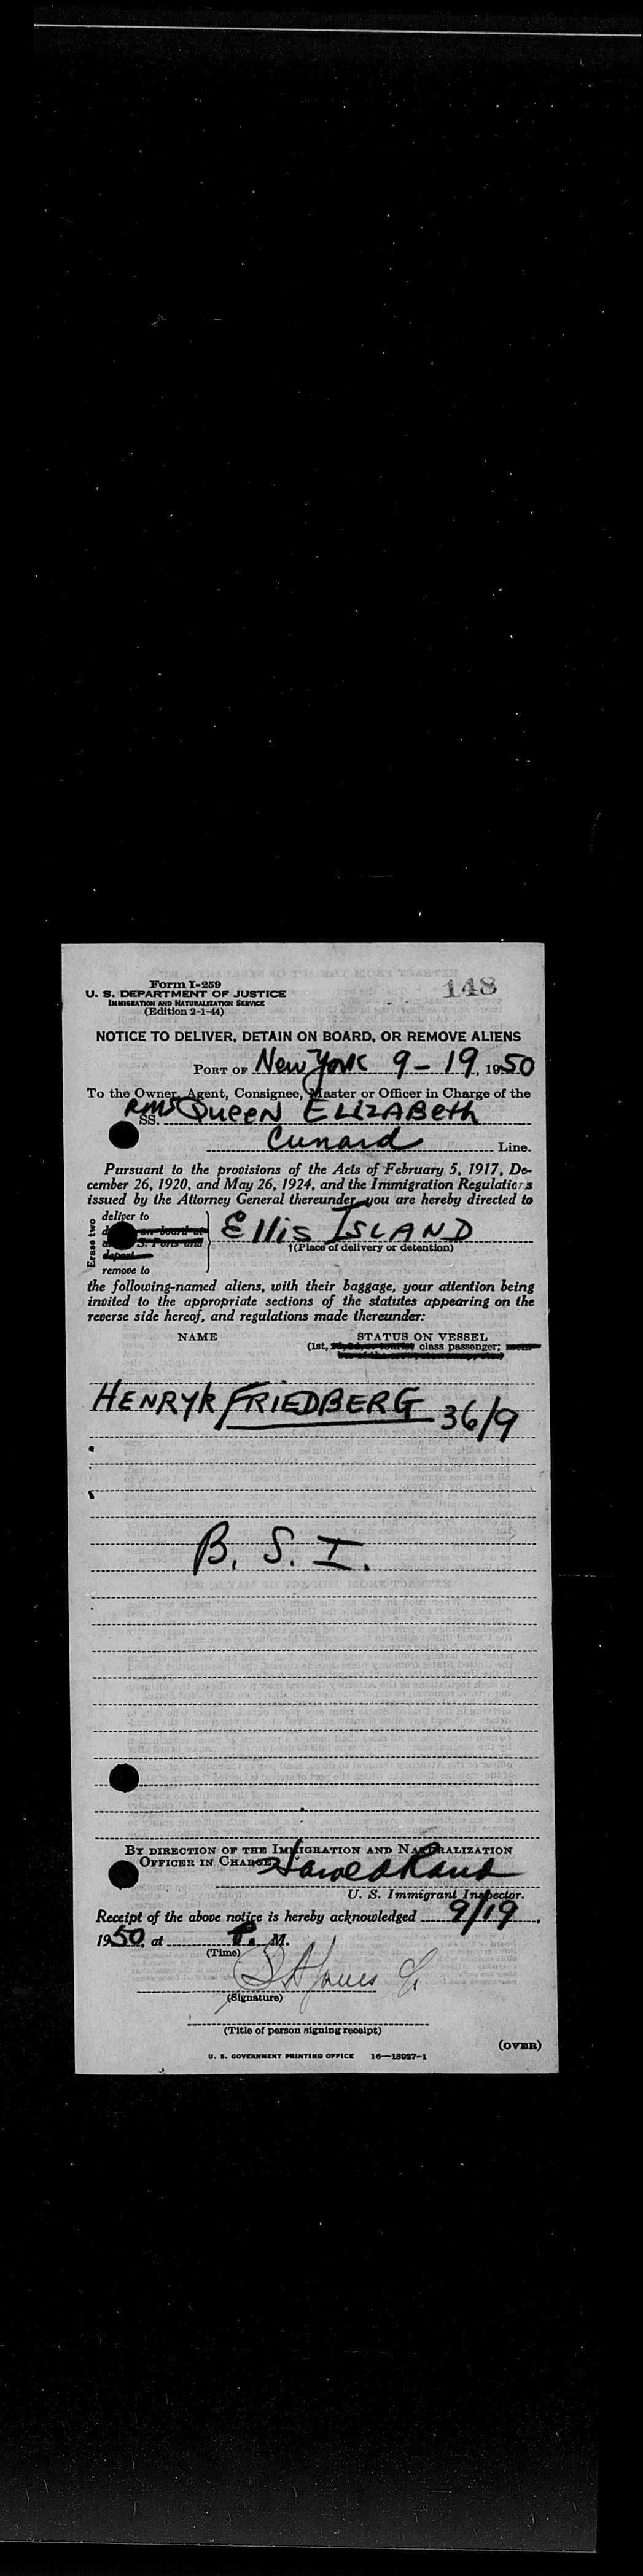 148
Form I-259
U. S. DEPARTMENT OF JUSTICE
IMMIGRATION AND NATURALIZATION SERVICE
(Edition 2-1-44)
NOTICE TO DELIVER, DETAIN ON BOARD, OR REMOVE ALIENS
PORT OF New York 9-19, 1950
To the Owner, Agent, Consignee, Master or Officer in Charge of the
RMS SS. QUEEN ELIZABETH
Cunard Line.
Pursuant to the provisions of the Acts of February 5, 1917, De-
cember 26, 1920, and May 26, 1924, and the Immigration Regulations
issued by the Attorney General thereunder, you are hereby directed to
Erase two
deliver to
on board at
S. Ports and
depart
remove to
Ellis ISLAND
†(Place of delivery or detention)
the following-named aliens, with their baggage, your attention being
invited to the appropriate sections of the statutes appearing on the
reverse side hereof, and regulations made thereunder:
NAME STATUS ON VESSEL
(1st, class passenger;
HENRYK FRIEDBERG 36/9
B. S. I.
BY DIRECTION OF THE IMMIGRATION AND NATURALIZATION
OFFICER IN CHARGE
U. S. Immigrant Inspector.
Receipt of the above notice is hereby acknowledged 9/19,
1950, at P. M.
(Time)
(Signature)
(Title of person signing receipt)
(OVER)
U. S. GOVERNMENT PRINTING OFFICE 16—18937-1